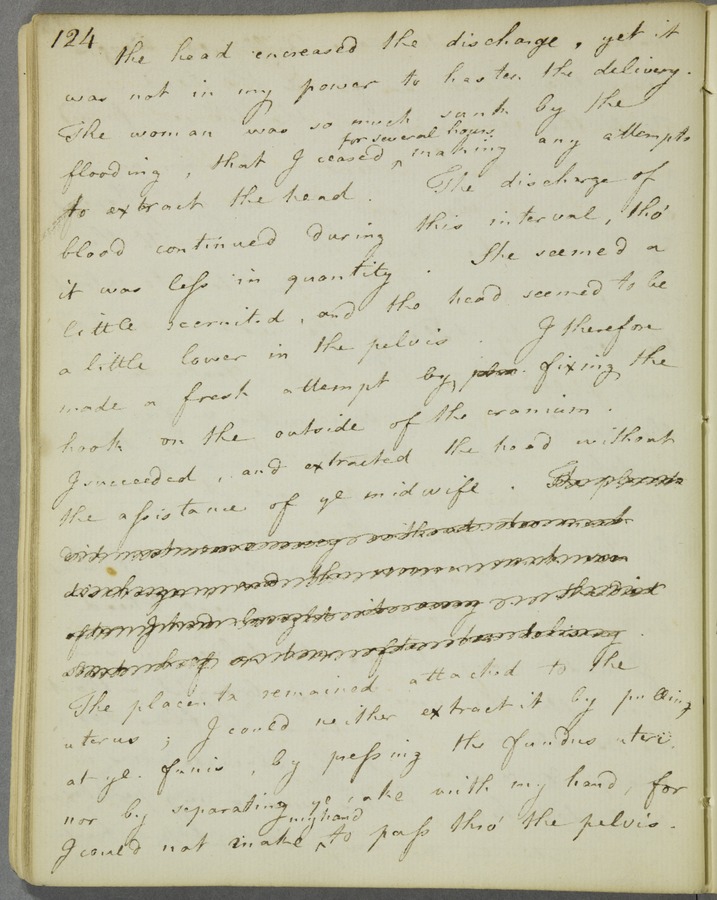 124
the head encreased the discharge, yet it
was not in my power to hasten the delivery.
The woman was so much sunk by the
for several hours
flooding, that I ceased ‸ making any attempts
to extract the head. The discharge of
blood continued during this interval, tho'
it was less in quantity. She seemed a
little recruited, and the head seemed to be
a little lower in the pelvis. I therefore
made a fresh attempt by fixing the
hook on the outside of the cranium.
I succeeded, and extracted the head without
the assistance of ye midwife. The placenta
after I had brought it away
The placenta remained attached to the
uterus; I could neither extract it by pulling
at ye. funis, by pressing the fundus uteri.
nor by separating ye cake with my hand, for
my hand
I could not make ‸ to pass thro' the pelvis.